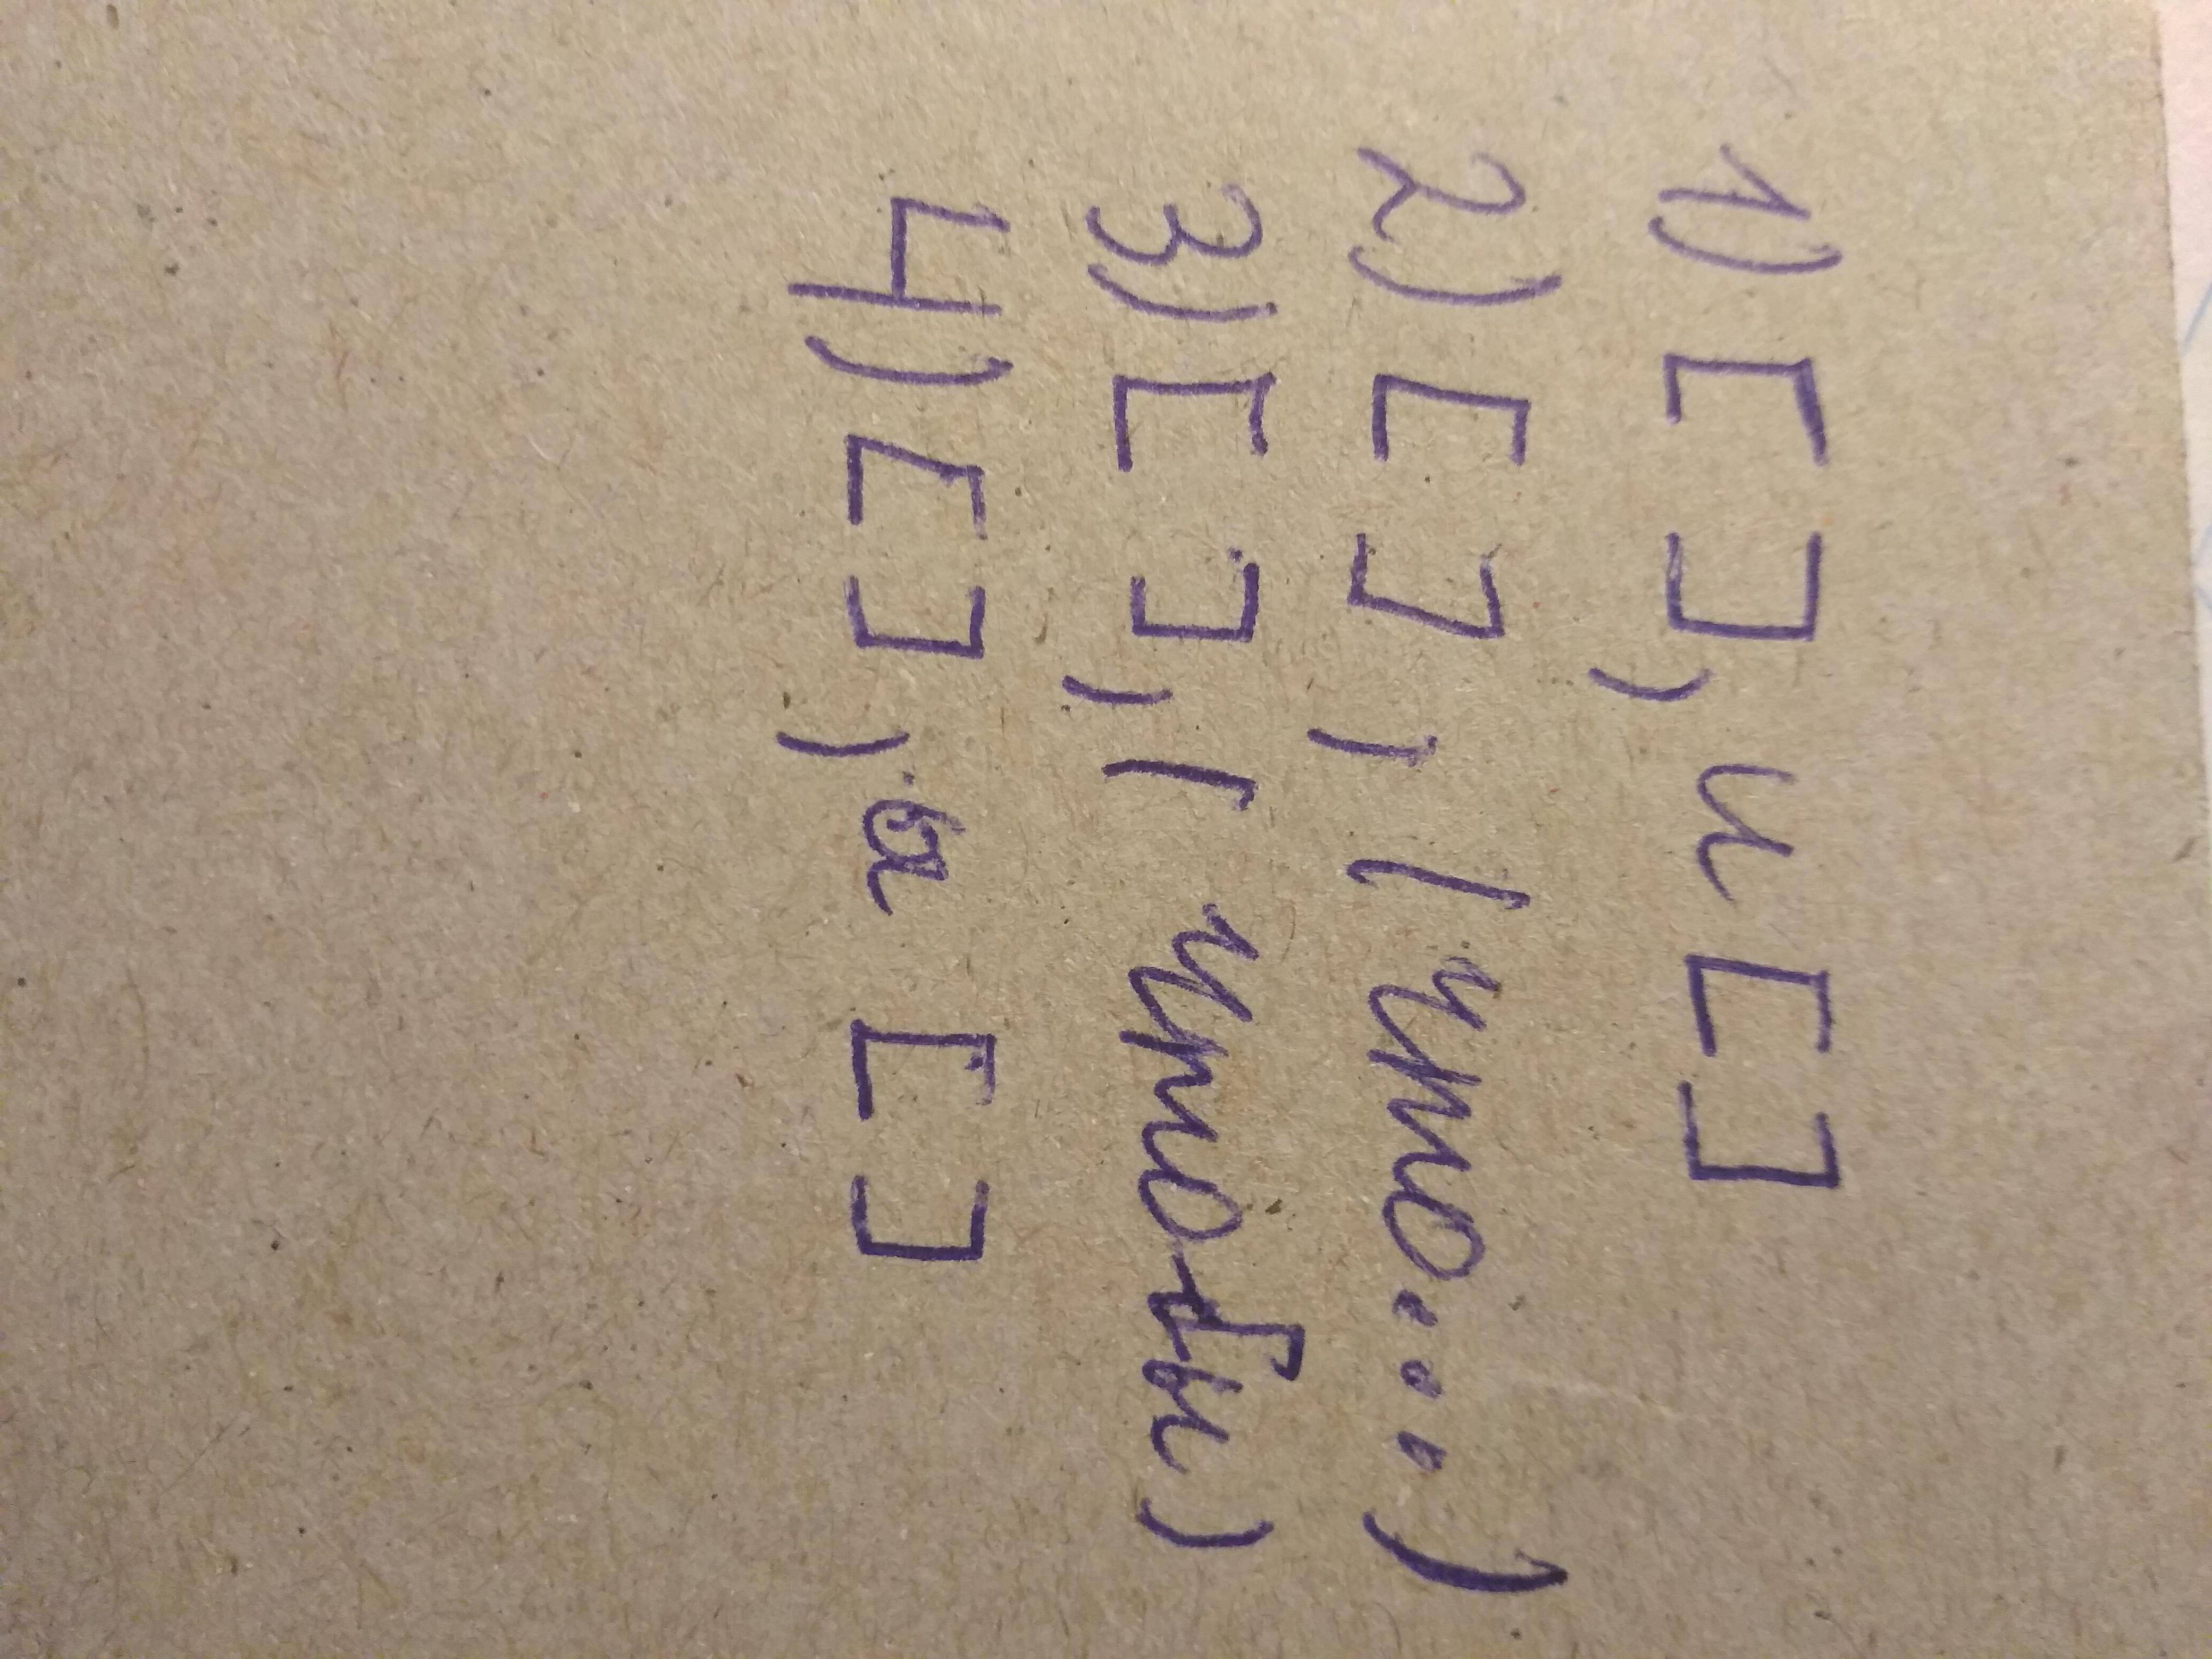 1) [ ], и [ ]
2) [ ], (что...)
3) [ ], ( чтобы)
4) [ ], а [ ]